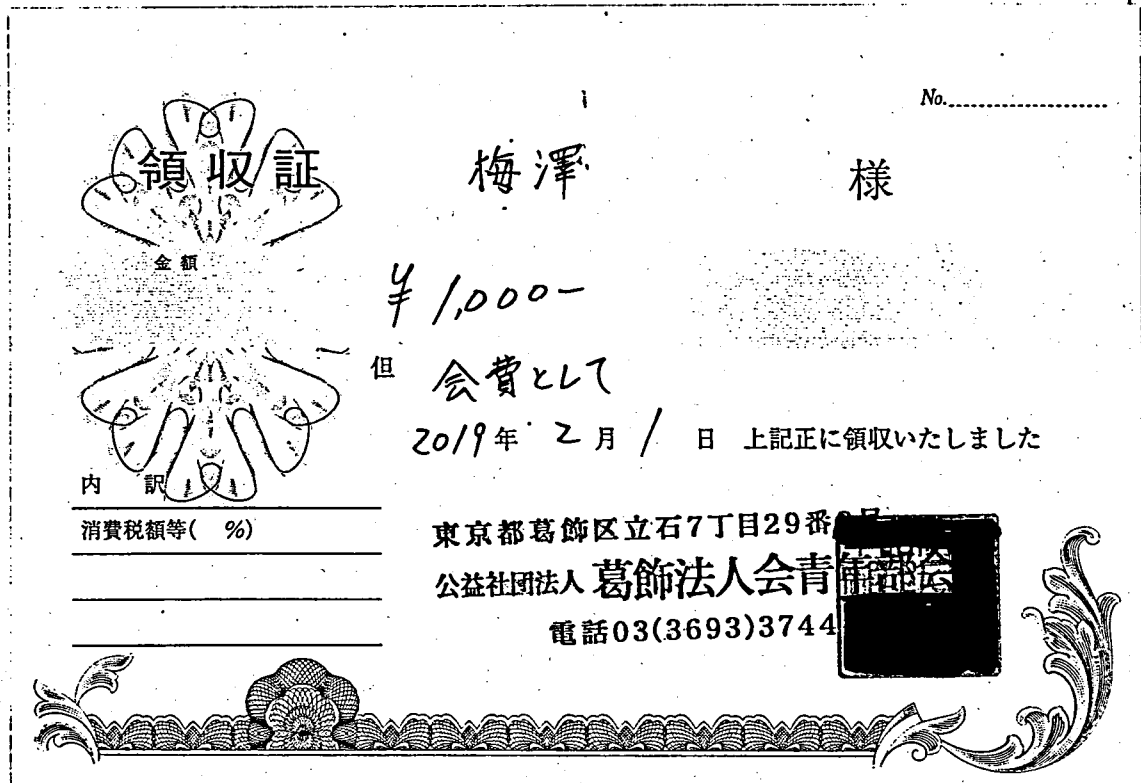 No.
領収証 梅澤 様
金額
¥1,000-
但 会費として
2019年 2月 1日 上記正に領収いたしました
内訳
消費税額等( %)
東京都葛飾区立石7丁目29番
公益社団法人 葛飾法人会青年部会
電話03(3693)3744